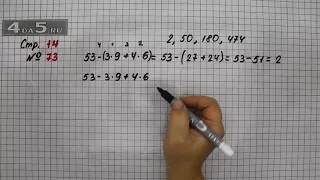 4DA5.RU
Стр. 14
№ 73
2, 50, 180, 474
4 1 3 2
53-(3·9+4·6)=53-(27+24)=53-51=2
53-3·9+4·6